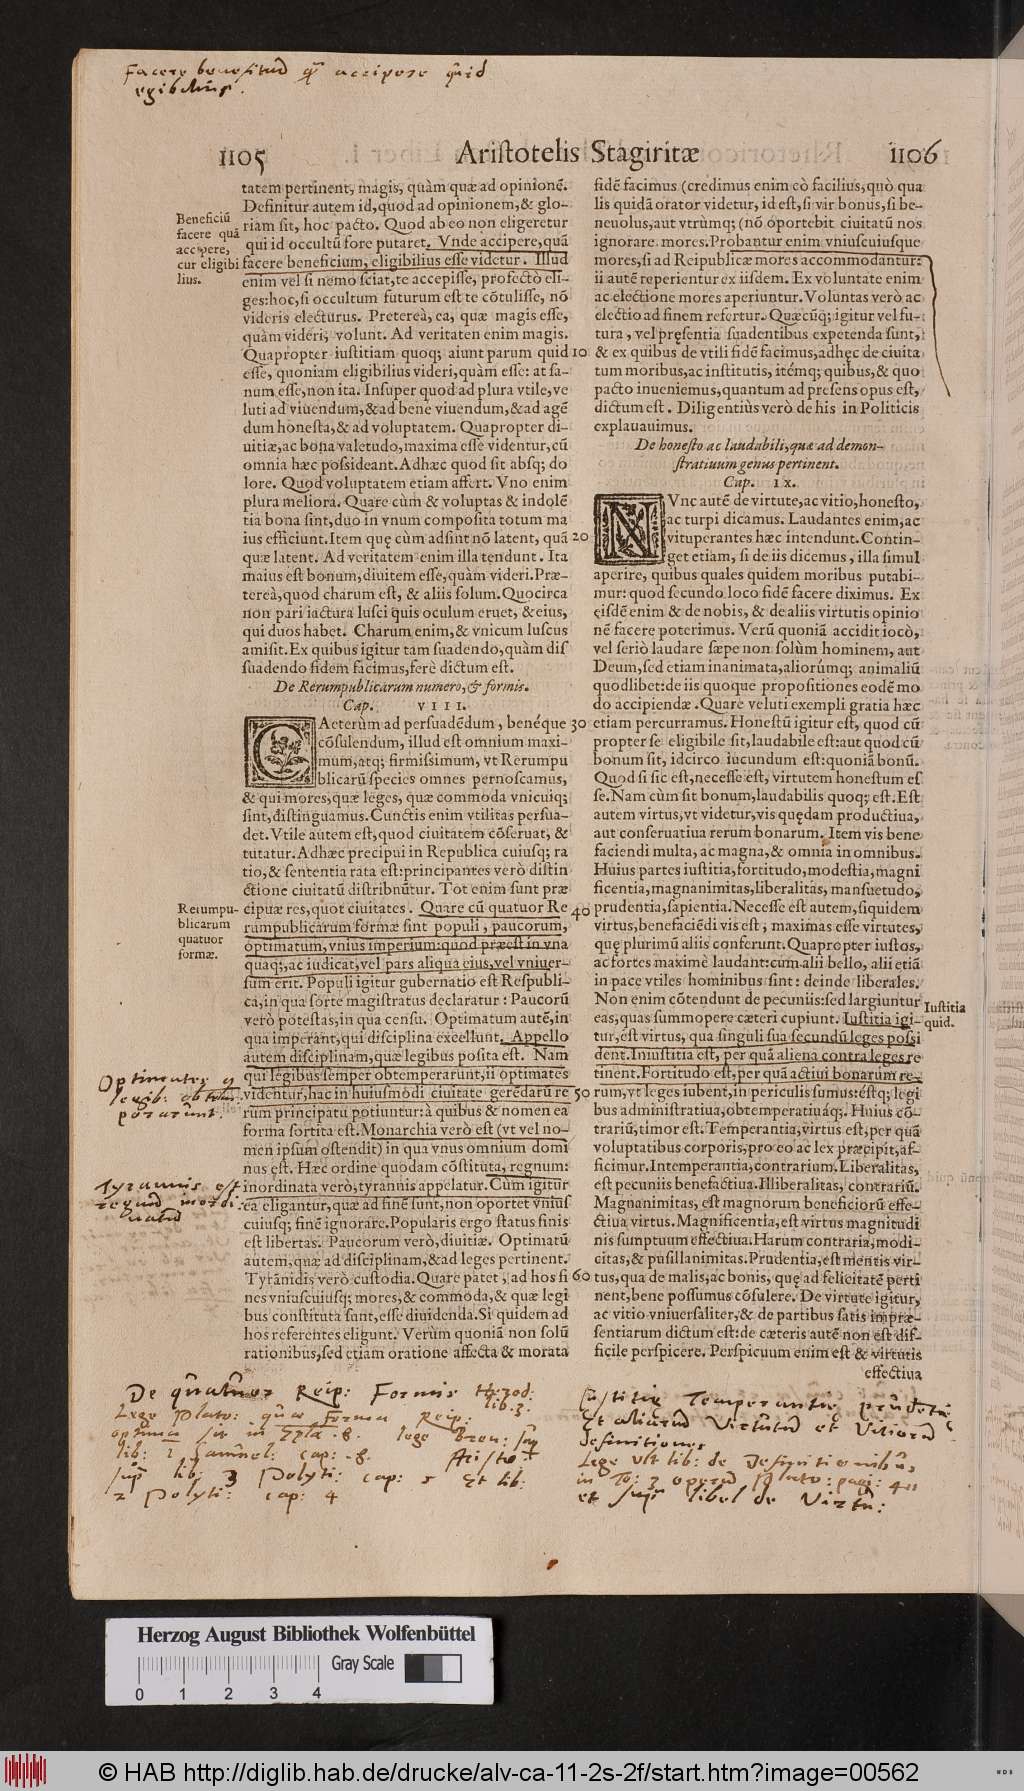 Facere benefitiũ qua͂ accipere quid
egibilius.
1105
Aristotelis Stagiritæ
1106
tatem pertinent, magis, quàm quæ ad opinionē.
Definitur autem id, quod ad opinionem, & glo-
riam sit, hoc pacto. Quod ab eo non eligeretur
qui id occultũ fore putaret. Vnde accipere, quã
facere beneficium, eligibilius esse videtur. Illud
enim vel si nemo sciat, te accepisse, profectò eli-
ges: hoc, si occultum futurum est te cõtulisse, nõ
videris electurus. Pretereà, ea, quæ magis esse,
quàm videri, volunt. Ad veritaten enim magis.
Quapropter iustitiam quoq; aiunt parum quid
esse, quoniam eligibilius videri, quàm esse: at sa-
num esse, non ita. Insuper quod ad plura vtile, ve
luti ad viuendum, & ad bene viuendum, & ad agẽ
dum honesta, & ad voluptatem. Quapropter di-
uitiæ, ac bona valetudo, maxima esse videntur, cũ
omnia hæc possideant. Adhæc quod sit absq; do
lore. Quod voluptatem etiam affert. Vno enim
plura meliora. Quare cùm & voluptas & indolẽ
tia bona sint, duo in vnum composita totum ma
ius efficiunt. Item quę cùm adsint nõ latent, quã
quæ latent. Ad veritatem enim illa tendunt. Ita
maius est bonum, diuitem esse, quàm videri. Præ-
tereà, quod charum est, & aliis solum. Quocirca
non pari iactura lusci quis oculum eruet, & eius,
qui duos habet. Charum enim, & vnicum luscus
amisit. Ex quibus igitur tam suadendo, quàm dis
suadendo fidem facimas, ferè dictum est.
De Rerumpublicarum numero, & formis.
Cap. VIII.
CAeterùm ad persuadẽdum, benéque
cõsulendum, illud est omnium maxi-
mum, atq; firmissimum, vt Rerumpu
blicarũ species omnes pernoscamus,
& qui mores, quæ leges, quæ commoda vnicuiq;
sint, distinguamus. Cunctis enim vtilitas persua-
det. Vtile autem est, quod ciuitatem cõseruat, &
tutatur. Adhæc precipui in Republica cuiusq; ra
tio, & sententia rata est: principantes verò distin
ctione ciuitatũ distribnũtur. Tot enim sunt præ
cipuæ res, quot ciuitates. Quare cũ quatuor Re
rumpublicarum formæ sint populi, paucorum,
optimatum, vnius imperium: quod præest in vna
quaq;, ac iudicat, vel pars aliqua eius, vel vniuer-
sum erit. Populi igitur gubernatio est Respubli-
ca, in qua sorte magistratus declaratur: Paucorũ
verò potestas, in qua censu. Optimatum autẽ, in
qua imperant, qui disciplina excellunt. Appello
autem disciplinam, quæ legibus posita est. Nam
qui legibus semper obtemperarunt, ii optimates
videntur, hac in huiusmodi ciuitate gerẽdarũ re
rum principatu potiuntur: à quibus & nomen ea
forma sortita est. Monarchia verò est (vt vel no-
men ipsum ostendit) in qua vnus omnium domi
nus est. Hæc ordine quodam cõstituta, regnum:
inordinata verò, tyrannis appelatur. Cùm igitur
ea eligantur, quæ ad finẽ sunt, non oportet vnius
cuiusq; finẽ ignorare. Popularis ergo status finis
est libertas. Paucorum verò, diuitiæ. Optimatũ
autem, quæ ad disciplinam, & ad leges pertinent.
Tyrãnidis verò custodia. Quare patet, ad hos si
nes vniuscuiusq; mores, & commoda, & quæ legi
bus constituta sunt, esse diuidenda. Si quidem ad
hos referentes eligunt. Verùm quoniã non solũ
rationibus, sed etiam oratione affecta & morata
Beneficiũ
facere quã
accipere,
cur eligibi
lius.
Rerumpu-
blicarum
quatuor
formæ.
Optimates q
legib: obtem
porarunt.
Tyrannis est
regnũ inordi
natũ
10
20
30
40
50
60
fidẽ facimus (credimus enim eò facilius, quò qua
lis quidã orator videtur, id est, si vir bonus, si be-
neuolus, aut vtrùmq; (nõ oportebit ciuitatũ nos
ignorare mores. Probantur enim vniuscuiusque
mores, si ad Reipublicæ mores accommodantur:
ii autẽ reperientur ex iisdem. Ex voluntate enim
ac electione mores aperiuntur. Voluntas verò ac
electio ad finem refertur. Quæcũq; igitur vel fu-
tura, vel pręsentia suadentibus expetenda sunt,
& ex quibus de vtili fidẽ facimus, adhęc de ciuita
tum moribus, ac institutis, itémq; quibus, & quo
pacto inueniemus, quantum ad presens opus est,
dictum est. Diligentiùs verò de his in Politicis
explauauimus.
De honesto ac laudabili, quæ ad demon-
stratiuum genus pertinent.
Cap. IX.
NVnc autẽ de virtute, ac vitio, honesto,
ac turpi dicamus. Laudantes enim, ac
vituperantes hæc intendunt. Contin-
get etiam, si de iis dicemus, illa simul
aperire, quibus quales quidem moribus putabi-
mur: quod secundo loco fidẽ facere diximus. Ex
eisdẽ enim & de nobis, & de aliis virtutis opinio
nẽ facere poterimus. Verũ quoniã accidit iocò,
vel seriò laudare sæpe non solùm hominem, aut
Deum, sed etiam inanimata, aliorúmq; animaliũ
quodlibet: de iis quoque propositiones eodẽ mo
do accipiendæ. Quare veluti exempli gratia hæc
etiam percurramus. Honestũ igitur est, quod cũ
propter se eligibile sit, laudabile est: aut quod cũ
bonum sit, idcirco iucundum est: quoniã bonũ.
Quod si sic est, necesse est, virtutem honestum es
se. Nam cùm sit bonum, laudabilis quoq; est. Est
autem virtus, vt videtur, vis quędam productiua,
aut conseruatiua rerum bonarum. Item vis bene
faciendi multa, ac magna, & omnia in omnibus.
Huius partes iustitia, fortitudo, modestia, magni
ficentia, magnanimitas, liberalitas, mansuetudo,
prudentia, sapientia. Necesse est autem, siquidem
virtus, benefaciẽdi vis est, maximas esse virtutes,
quę plurimũ aliis conferunt. Quapropter iustos,
ac fortes maximè laudant: cùm alii bello, alii etiã
in pace vtiles hominibus sint: deinde liberales.
Non enim cõtendunt de pecuniis: sed largiuntur
eas, quas summopere cæteri cupiunt. Iustitia igi-
tur, est virtus, qua singuli sua secundũ leges possi
dent. Iniustitia est, per quã aliena contra leges re
tinent. Fortitudo est, per quã actiui bonarum re-
rum, vt leges iubent, in periculis sumus: éstq; legi
bus administratiua, obtemperatiuáq;. Huius cõ-
trariũ, timor est. Temperantia, virtus est, per quã
voluptatibus corporis, pro eo ac lex præcipit, af-
ficimur. Intemperantia, contrarium. Liberalitas,
est pecuniis benefactiua. Illiberalitas, contrariũ.
Magnanimitas, est magnorum beneficiorũ effe-
ctiua virtus. Magnificentia, est virtus magnitudi
nis sumptuum effectiua. Harum contraria, modi-
citas, & pusillanimitas. Prudentia, est mentis vir-
tus, qua de malis, ac bonis, quę ad felicitatẽ perti
nent, bene possumus cõsulere. De virtute igitur,
ac vitio vniuersaliter, & de partibus satis impræ-
sentiarum dictum est: de cæteris autẽ non est dif-
ficile perspicere. Perspicuum enim est & virtutis
effectiua
Iustitia
quid.
De quatuor Reip: Formis Herod:
lib. 3.
Lege Plato: quæ forma Reip:
optima sit in Epla .8. lege
lib: 1 Samuel: cap: .8. Aristo:
sup lib: 3 Polyti: cap: 5 Et lib:
2 Polyti: cap: 4
Iustitiæ Temperantiæ prudẽtiæ
Et aliarũ Virtutũ et Vitiorũ
Definitiones
Lege Vlt lib: de Definitionibus
in To: 3 operũ Plato: pagi: 411
et sup libel de Virtu:
Herzog August Bibliothek Wolfenbüttel
Gray Scale
0 1 2 3 4
© HAB http://diglib.hab.de/drucke/alv-ca-11-2s-2f/start.htm?image=00562